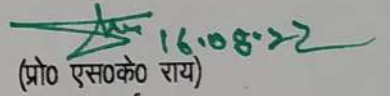 16.08.22
(प्रो0 एस0के0 राय)